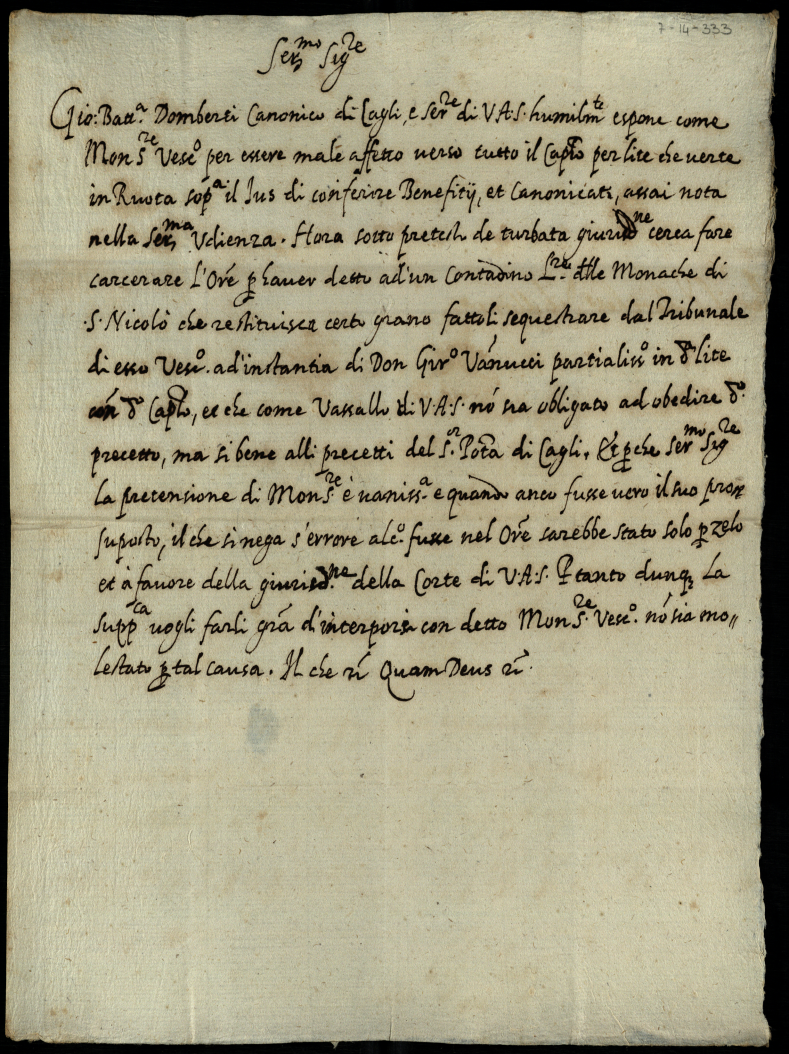 7-14-333
Ser.mo Sig.re
Gio: Batt.a Domberti Canonico di Cagli, e Ser.re di V.A.S. humilm.te espone come
Mons.re Vesc.o per essere male affetto verso tutto il Cap.lo per lite che verte
in Ruota sop.a il Jus di conferire Benefitij, et Canonicati, assai nota
nella Ser.ma Udienza. Hora sotto pretesto de turbata giurisd.ne cerca fare
carcerare l'Ore p haver detto ad un Contadino delle Monache di
S. Nicolò che restituisca certo grano fattoli sequestrare dal Tribunale
di esso Vesc.o ad instantia di Don Gir.o Vanucci partialiss.o in d.a lite
con d.o Cap.lo, et che come Vassallo di V.A.S. nō sia obligato ad obedire d.o
precetto, ma si bene alli precetti del S.or Pota di Cagli, Et p che Ser.mo Sig.re
la pretensione di Mons.re è vaniss.a e quando anco fusse vero il suo pro
suposto, il che si nega s'errore alc.o fusse nel Ore sarebbe stato solo p zelo
et à favore della giurisd.ne della Corte di V.A.S. P tanto dunq; la
supp.ca vogli farli grā d'interporsi con detto Mons.re Vesc.o nō sia mo„
lestato p tal causa. Il che rī Quam Deus rī.